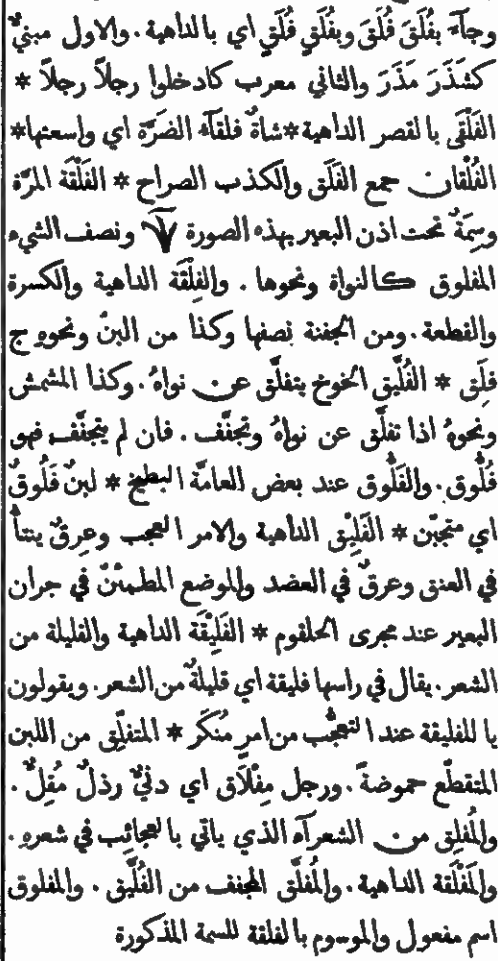 وجآءَ بعُلَقَ فُلَقَ وبعُلَقٍ فُلَقٍ اي بالداهية. والاول مبنيٌّ
كشَذَرَ مَذَرَ والثاني معرب كادخلوا رجلاً رجلاً *
الفَلْقَى بالقصر الداهية * شاةٌ فلقآءُ الضَرَّة اي واسعتها *
الفُلْقان جمع الفَلَق والكذب الصراح * الفَلْقة المرّة
وسِمَةٌ تحت اذن البعير بهذه الصورة ونصف الشيء
المفلوق كالنواة ونحوها. والفِلْقة الداهية والكسرة
والقطعة. ومن الجفنة نصفها وكذا من البنّ ونحوهِ ج
فِلَق * الفُلَّيق الخوخ يتفلَّق عن نواهُ. وكذا المشمش
ونحوهُ اذا تفلَّق عن نواهُ وتجفَّف. فان لم يتجفَّف فهو
فُلُّوق. والفَلُّوق عند بعض العامَّة البطيخ * لبنٌ فَلُوقٌ
اي متجبّن * الفَلِيْق الداهية والامر العجب وعرقٌ ينتأُ
في العنق وعرقٌ في العضد والموضع المطمئنّ في جران
البعير عند مجرى الحلقوم * الفَلِيْقَة الداهية والقليلة من
الشعر. يقال في راسها فليقة اي قليلةٌ من الشعر. ويقولون
يا للفليقة عند التعجُّب من امرٍ مُنكَر * المتفلِّق من اللبن
المتقطّع حموضةً. ورجل مِفْلَاق اي دنيٌّ رذلٌ مُقِلٌّ.
والمُفلِق من الشعرآء الذي ياتي بالعجائب في شعرهِ.
والمَفْلَقة الداهية. والمُفلَّق المجفف من الفُلَّيق. والمفلوق
اسم مفعول والموسوم بالفلقة للسمة المذكورة